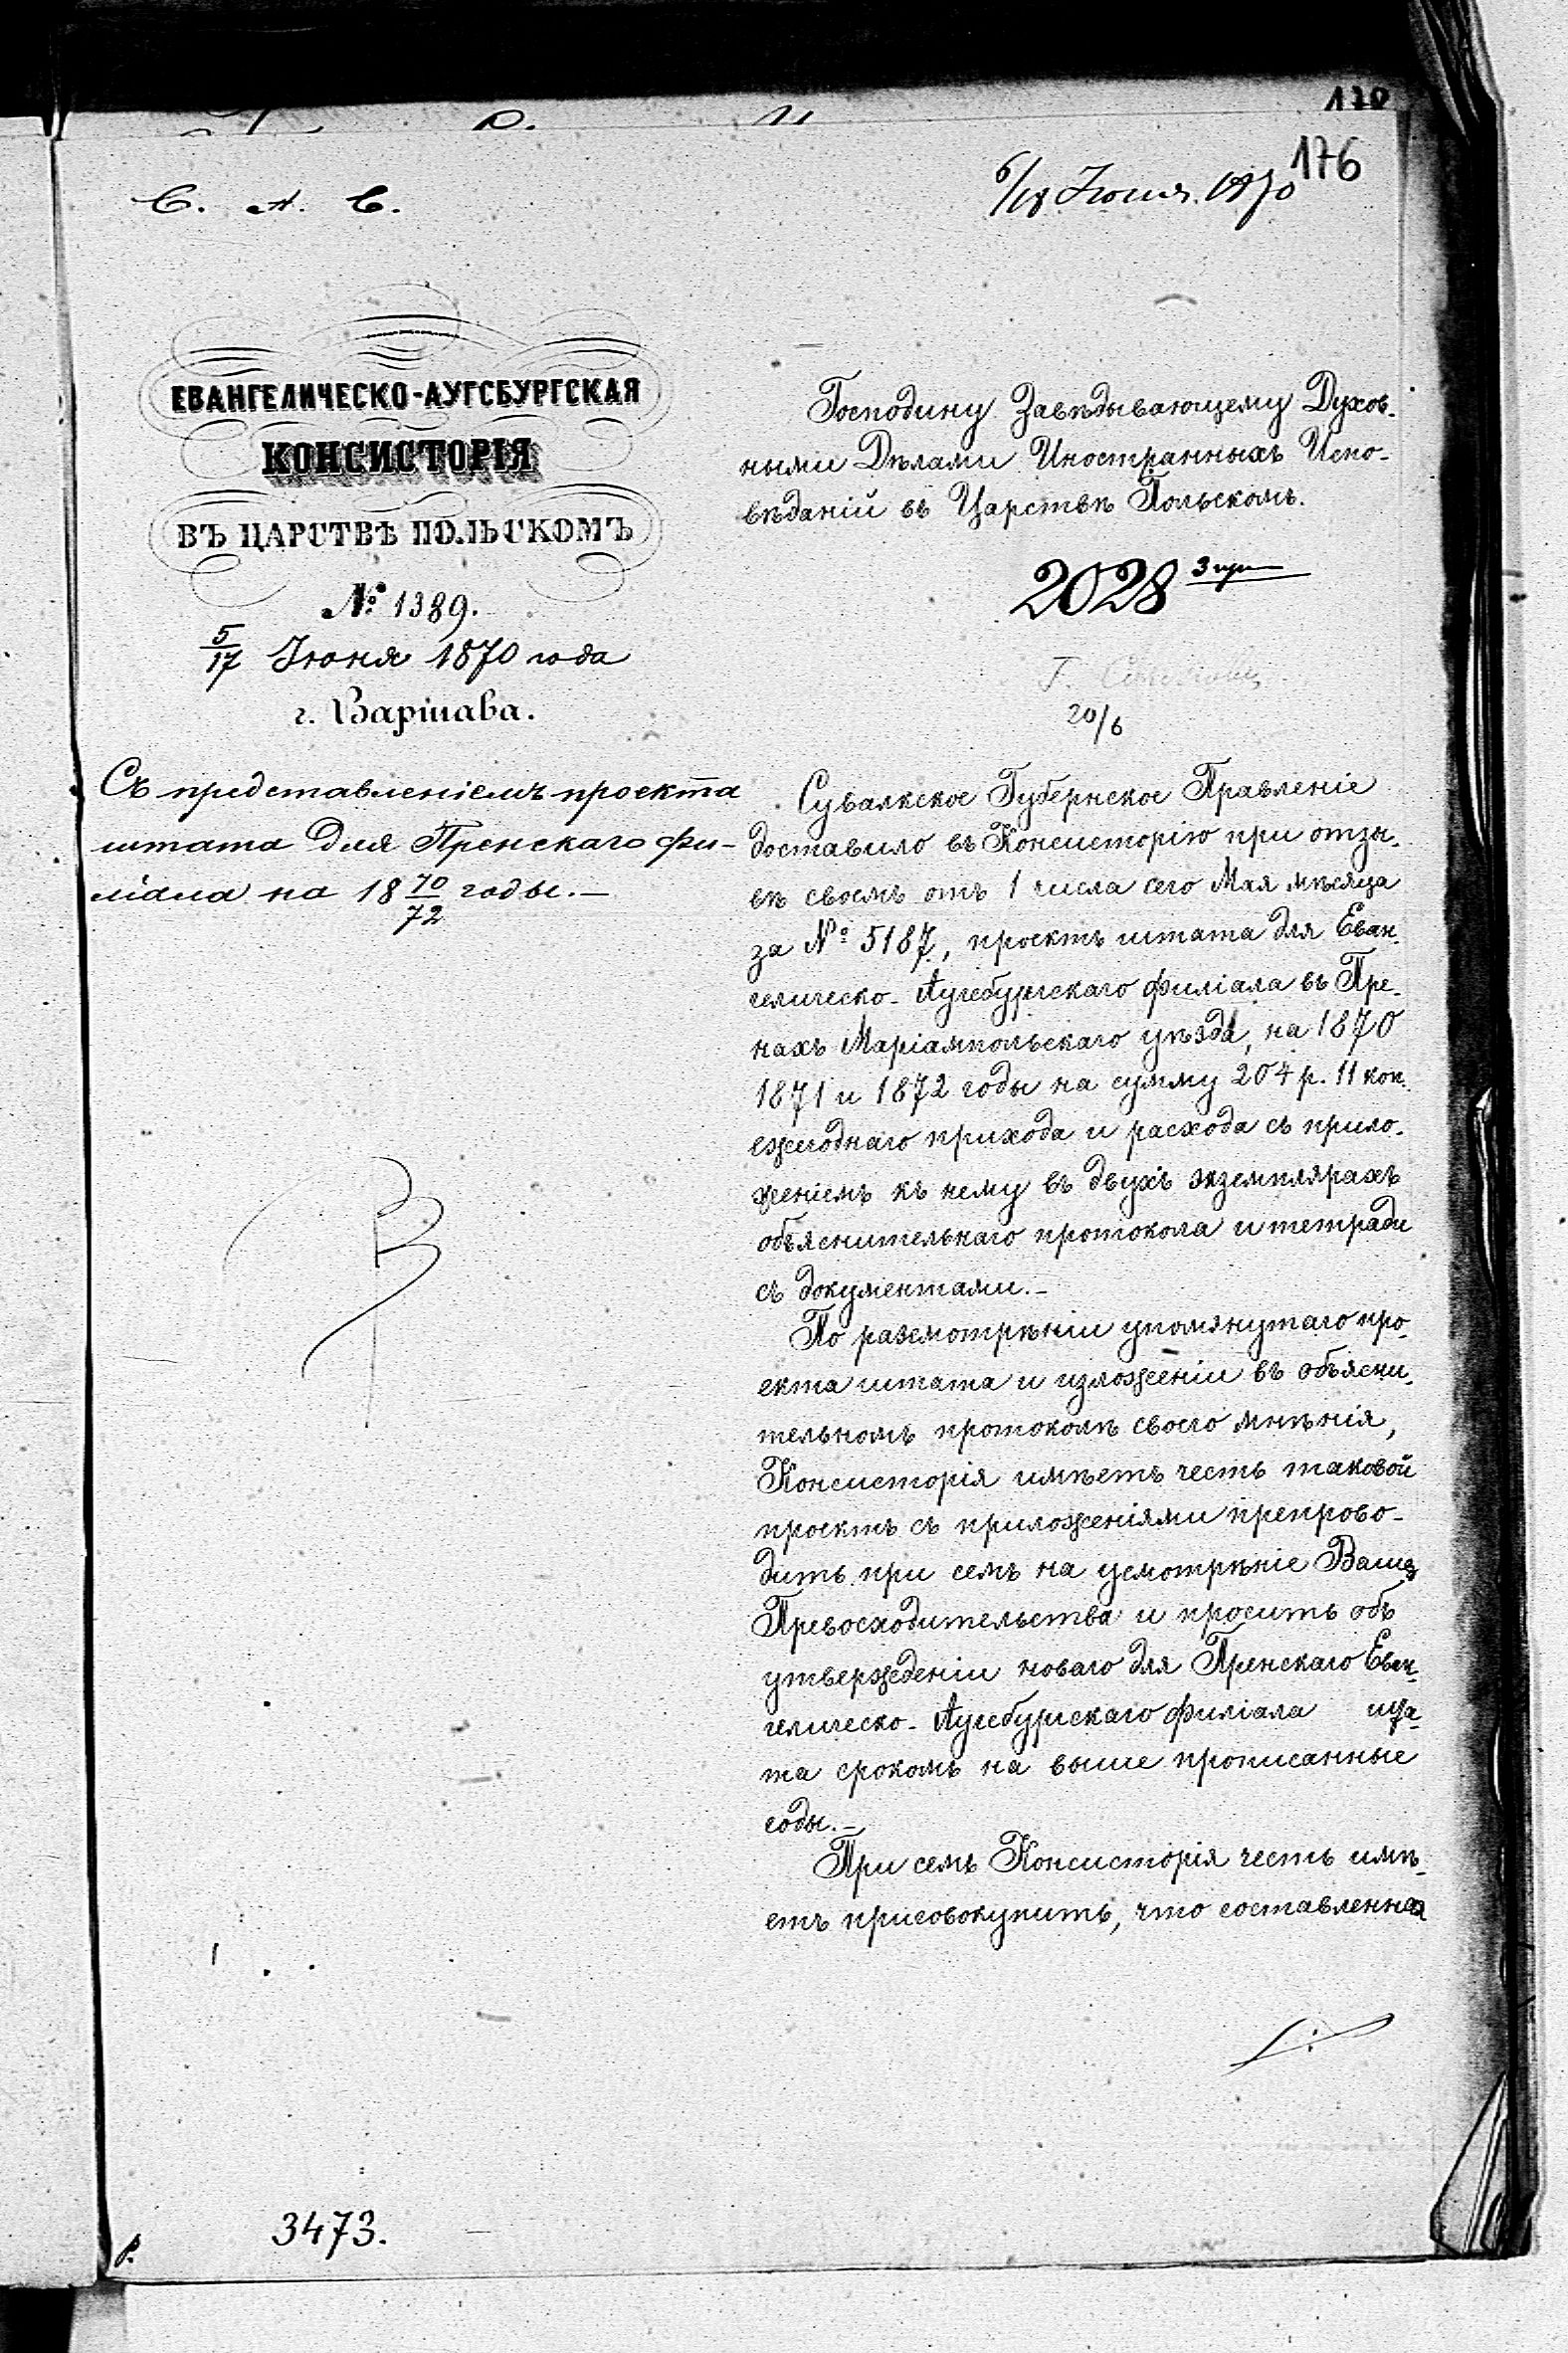 178
176
С. А. С.
6/18 Июня. 1870
ЕВАНГЕЛИЧЕСКО-АУГСБУРГСКАЯ
КОНСИСТОРІЯ
ВЪ ЦАРСТВѢ ПОЛЬСКОМЪ
№ 1389.
5/17 Іюня 1870 года
г. Варшава.
Съ представленіемъ проекта
штата для Пренскаго фи-
ліала на 18 70/72 годы.—
Господину Завѣдывающему Духов-
ными Дѣлами Иностранныхъ Испо-
вѣданій въ Царствѣ Польскомъ.
2028
Г.
20/6
Сувалкское Губернское Правленіе
доставило въ Консисторію при отзы-
вѣ своемъ отъ 1 числа сего Мая мѣсяца
за № 5187, проектъ штата для Еван-
гелическо-Аугсбургскаго филіала въ Пре-
нахъ Маріампольскаго уѣзда, на 1870
1871 и 1872 годы на сумму 204 р. 11 коп.
ежегоднаго прихода и расхода съ прило-
женіемъ къ нему въ двухъ экземплярахъ
объяснительнаго протокола и тетради
съ документами.—
По разсмотрѣніи упомянутаго про-
екта штата и изложеніи въ объясни-
тельномъ протоколѣ своего мнѣнія,
Консисторія имѣетъ честь таковой
проектъ съ приложеніями препрово-
дить при семъ на усмотрѣніе Ваше
Превосходительства и просить объ
утвержденіи новаго для Пренскаго Еван-
гелическо-Аугсбургскаго филіала шта-
та срокомъ на выше прописанные
годы.—
При семъ Консисторія честь имѣ-
етъ присовокупить, что составленна
3473.